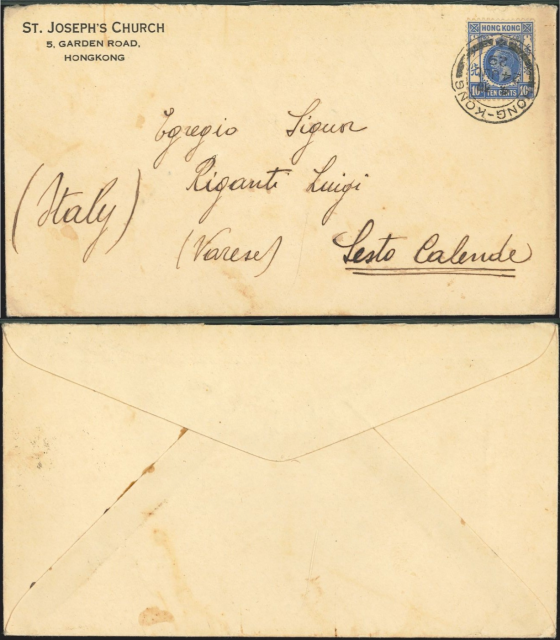 ST. JOSEPH'S CHURCH
5, GARDEN ROAD,
HONGKONG
HONG KONG
10 TEN CENTS 10
HONG-KONG
Egregio Signor
Riganti Luigi
(Italy)
(Varese) Sesto Calende